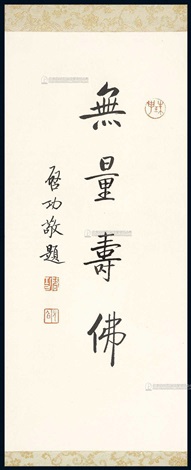 無量壽佛
啓功敬題